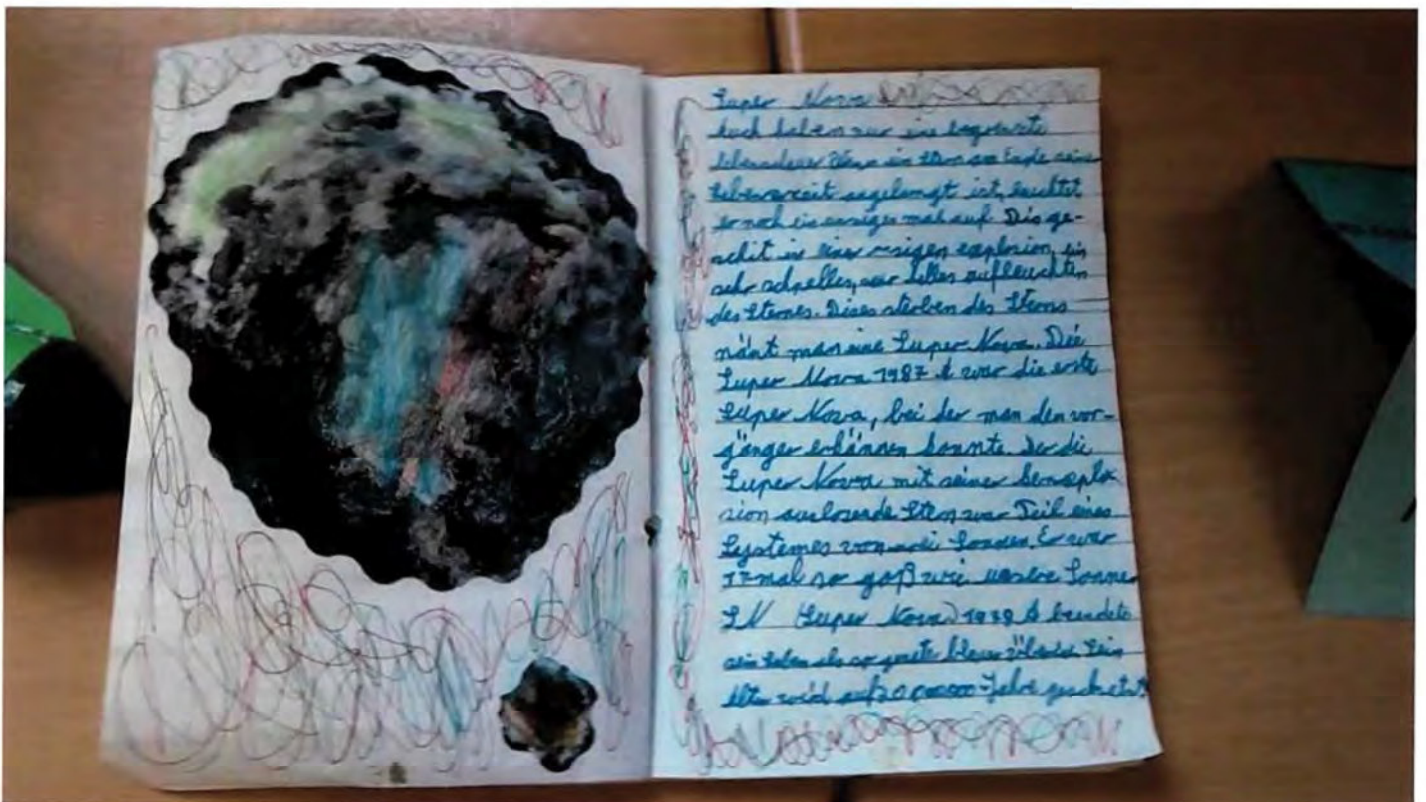 Super Nova
haben nur eine begrenzte
Wenn ein Stern am Ende seine
Lebenszeit angelangt ist, leuchtet
er noch ein einziges mal auf. Dis ge-
schit in einer risigen explosion, ein
sehr schnelles, ser helles aufleuchten
des Sternes. Dises sterben des Sterns
nänt man eine Super Nova. Die
Super Nova 1987 A war die erste
Super Nova, bei der man den vor-
gänger erkännen konnte. Der die
Super Nova mit seiner
sion auslosende Stern war Teil eines
Systemes von drei Sonnen. Er war
17 mal so goß wie unsere Sonne
SN (Super Nova) A beendete
sein Leben als so blauer Sein
Alter wird auf Jahre geschetzt